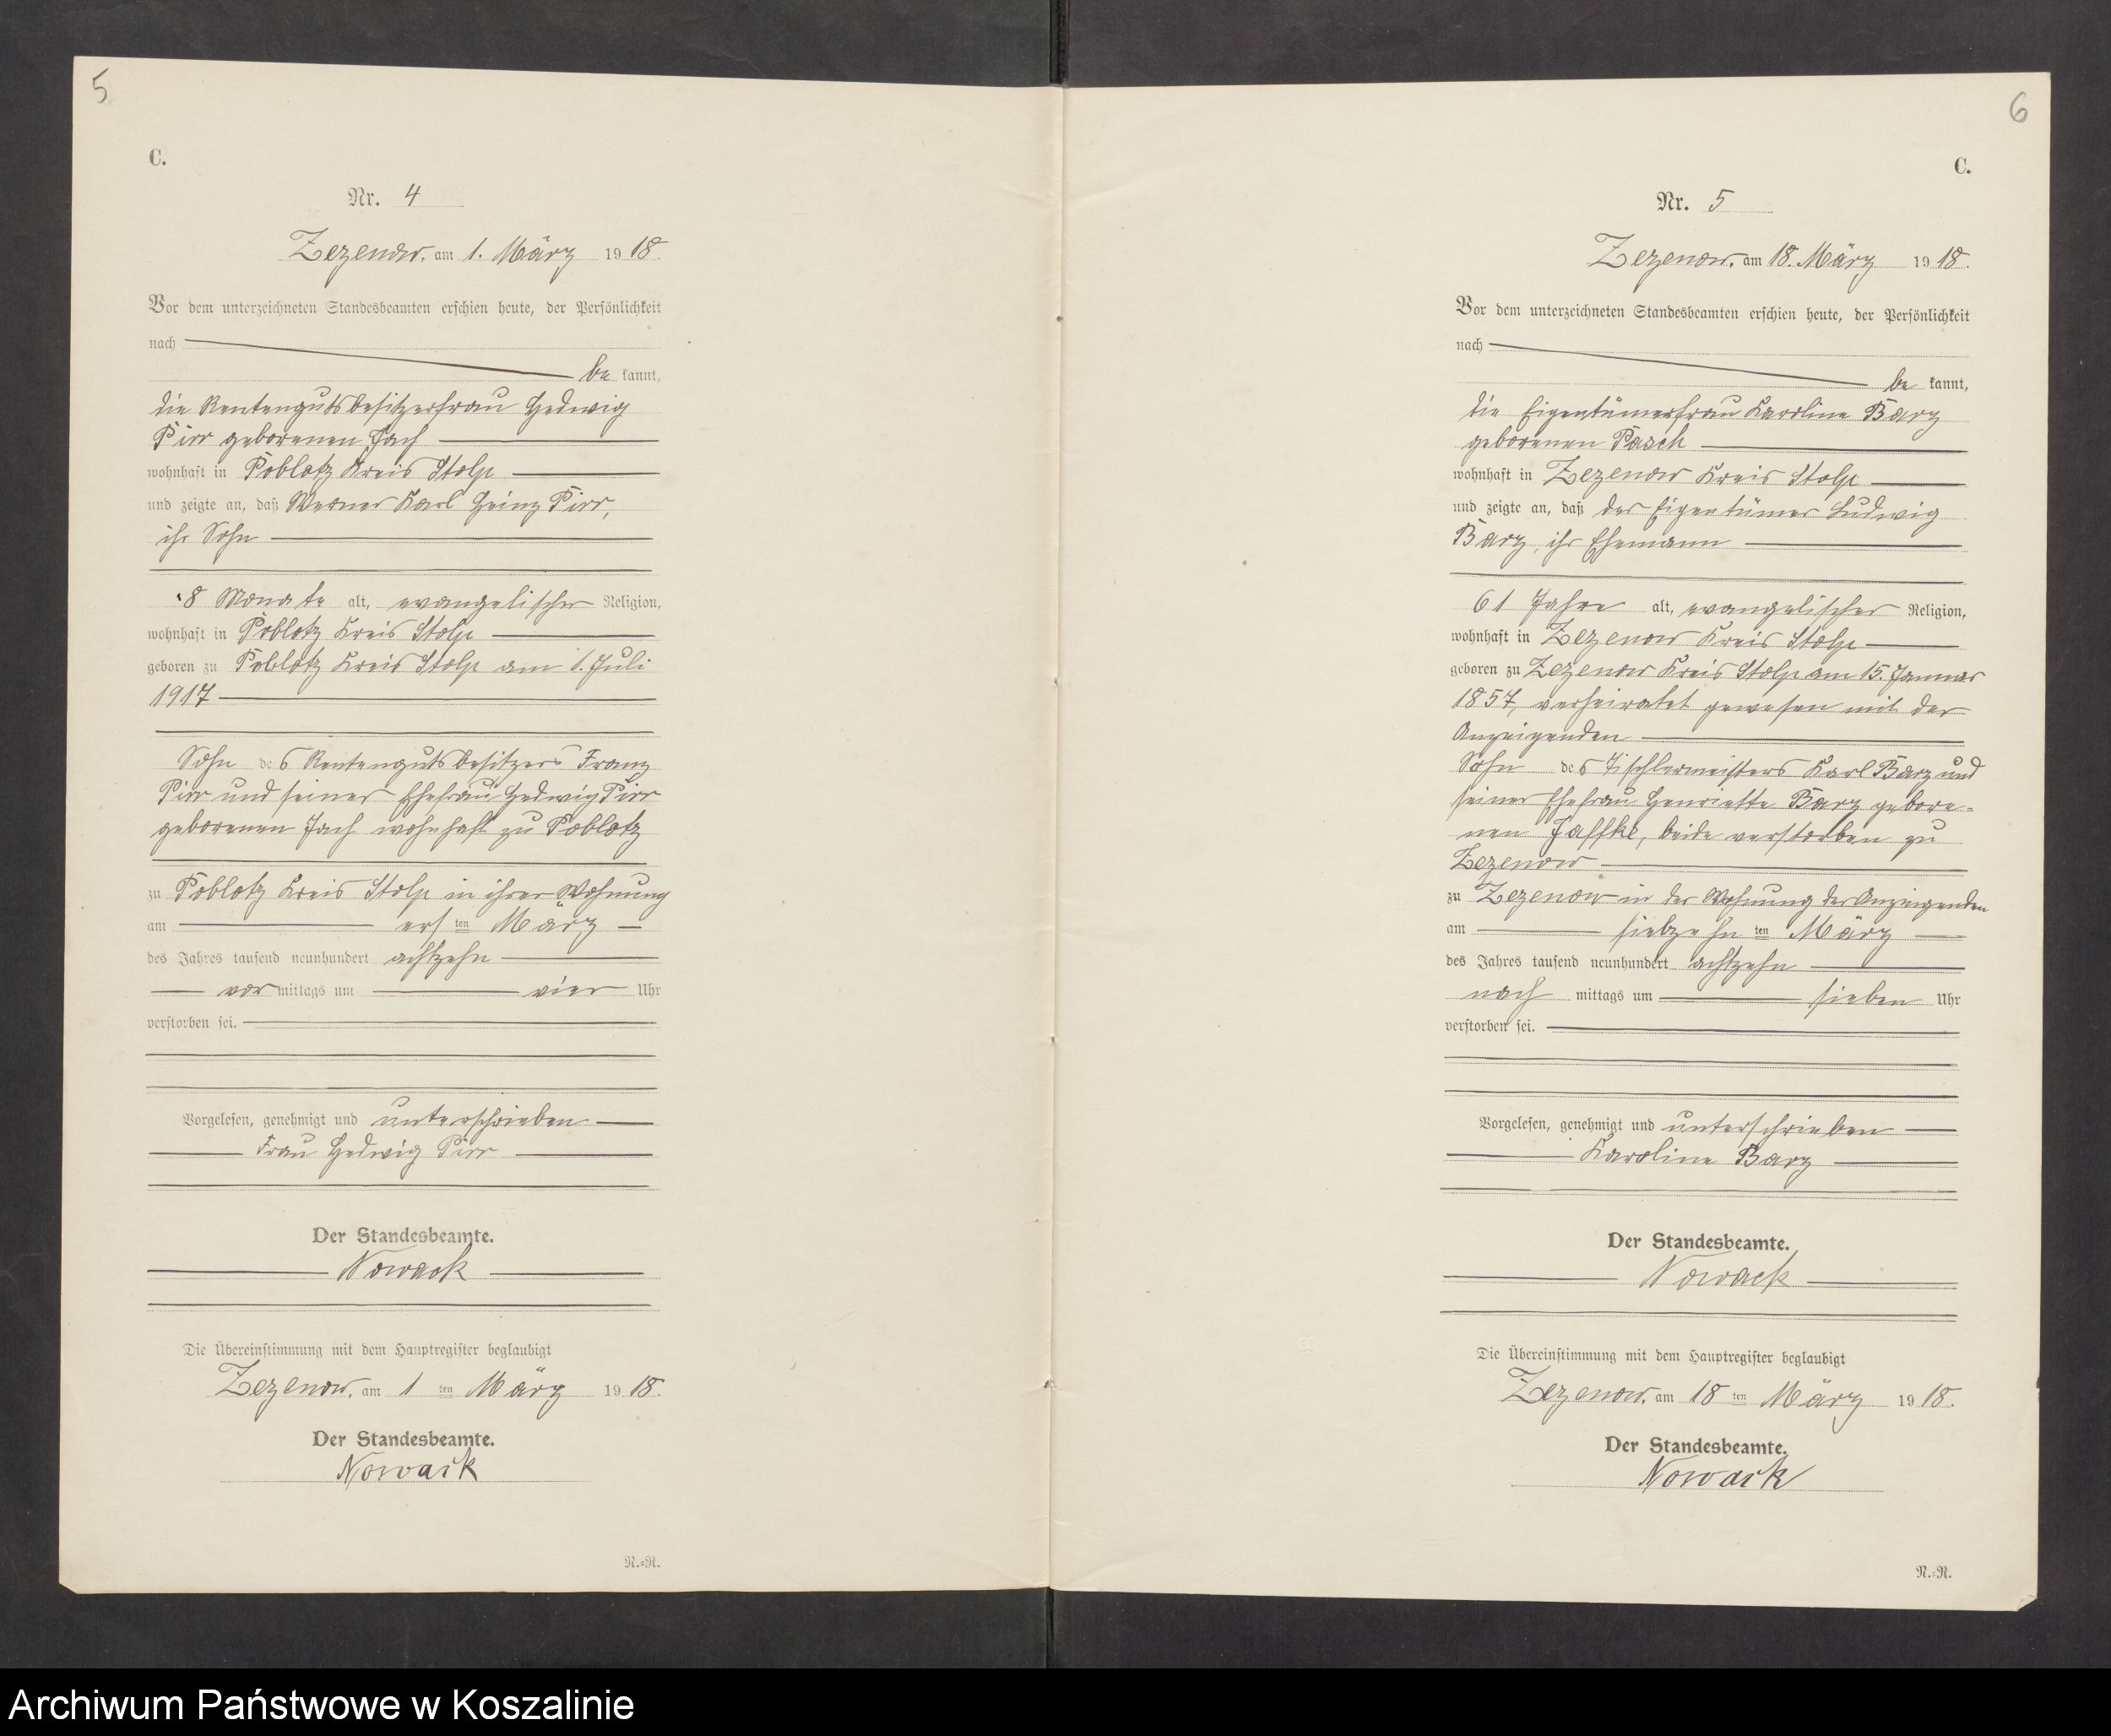 5
C.
Nr. 4
Zezenow, am 1. März 1918.
Vor dem unterzeichneten Standesbeamten erschien heute, der Persönlichkeit
nach
be kannt,
die Rentengutsbesitzerfrau Hedwig
Pirr geborenen Jach
wohnhaft in Poblotz Kreis Stolp
und zeigte an, daß Werner Karl Heinz Pirr,
ihr Sohn
8 Monate alt, evangelischer Religion,
wohnhaft in Poblotz Kreis Stolp
geboren zu Poblotz Kreis Stolp am 1. Juli
1917
Sohn des Rentengutsbesitzers Franz
Pirr und seiner Ehefrau Hedwig Pirr
geborenen Jach wohnhaft zu Poblotz
zu Poblotz Kreis Stolp in ihrer Wohnung
am ersten März
des Jahres tausend neunhundert achtzehn
vormittags um vier Uhr
verstorben sei.
Vorgelesen, genehmigt und unterschrieben
Frau Hedwig Pirr
Der Standesbeamte.
Nowack
Die Übereinstimmung mit dem Hauptregister beglaubigt
Zezenow, am 1 ten März 1918.
Der Standesbeamte.
Nowack
N.=N.
6
C.
Nr. 5
Zezenow, am 18. März 1918.
Vor dem unterzeichneten Standesbeamten erschien heute, der Persönlichkeit
nach
be kannt,
die Eigentümerfrau Karoline Barz
geborenen Pasch
wohnhaft in Zezenow Kreis Stolp
und zeigte an, daß der Eigentümer Ludwig
Barz, ihr Ehemann
61 Jahre alt, evangelischer Religion,
wohnhaft in Zezenow Kreis Stolp
geboren zu Zezenow Kreis Stolp am 15. Januar
1857, verheiratet gewesen mit der
Anzeigenden
Sohn des Tischlermeisters Karl Barz und
seiner Ehefrau Henriette Barz gebore-
nen Jaffke, beide verstorben zu
Zezenow
zu Zezenow in der Wohnung der Anzeigenden
am siebzehnten März
des Jahres tausend neunhundert achtzehn
nach mittags um sieben Uhr
verstorben sei.
Vorgelesen, genehmigt und unterschrieben
Karoline Barz
Der Standesbeamte.
Nowack
Die Übereinstimmung mit dem Hauptregister beglaubigt
Zezenow, am 18 ten März 1918.
Der Standesbeamte.
Nowack
N.=N.
Archiwum Państwowe w Koszalinie